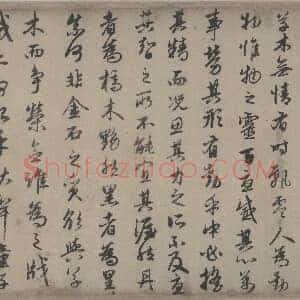 草木無情有時飄零人為動
物惟物之靈百憂感其心萬
事勞其形有動乎中必搖
其精而況思其力之所不及憂
其智之所不能宜其渥然丹
者為槁木黟然黑者為星
星奈何非金石之質欲與草
木而爭榮念誰為之戕
賊亦何恨乎秋聲童子